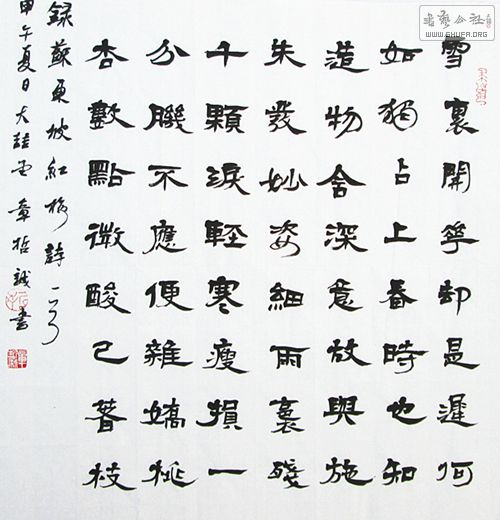 雪裏開華却是遲何
如獨占上春時也知
造物含深意故與施
朱發妙姿細雨裛殘
千顆淚輕寒瘦損一
分肌不應便雜嬌桃
杏數點微酸已著枝
錄蘇東坡紅梅詩一首
甲午夏日大章哲誠書
書藝公社
WWW.SHUFA.ORG